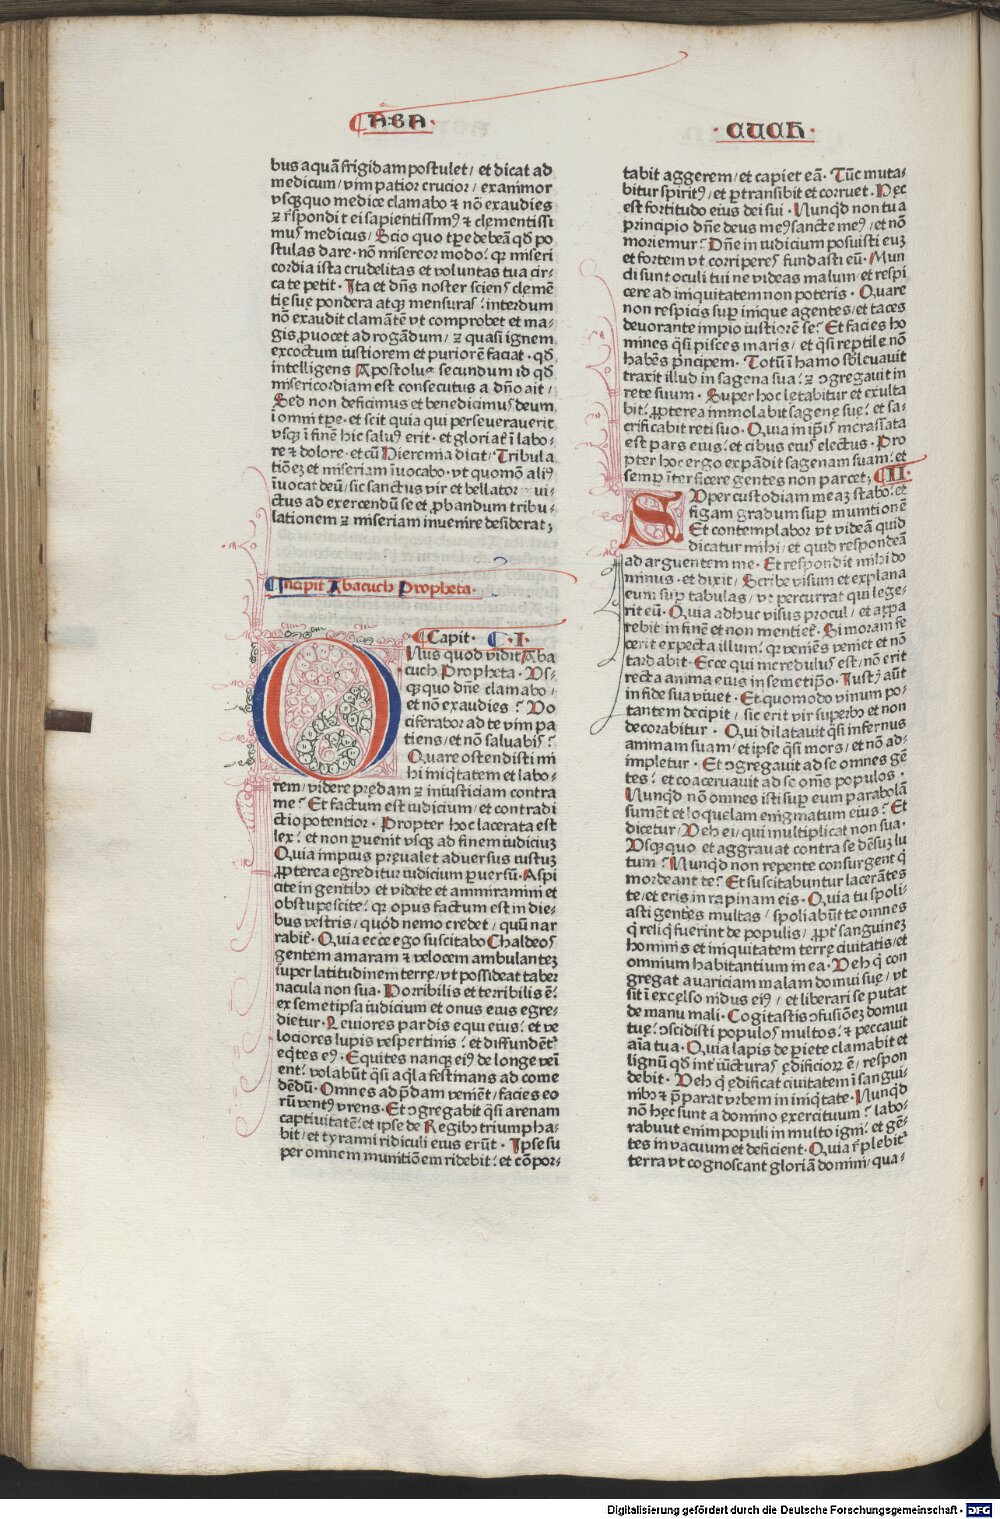 ABA
CUCH
bus aquā frigidam postulet / et dicat ad
medicum / vim patior crucior / exanimor
vsq̄quo medice clamabo ⁊ nō exaudies
⁊ r̄spondit ei sapientissimꝰ ⁊ clemētissi
mus medicus / Scio quo tp̄e debeā qd̄ po
stulas dare · nō misereor modo · qr̄ miseri
cordia ista crudelitas et voluntas tua cir-
ca te petit · Ita et dn̄s noster sciens clemē
tię suę pondera atqꝫ mensuras : interdum
nō exaudit clamātē vt comprobet et ma-
gis ꝓuocet ad rogādum / ⁊ quasi ignem
excoctum iustiorem et puriorē faciat · qd̄
intelligens Apostolus secundum id qd̄
misericordiam est consecutus a dn̄o ait /
Sed non deficimus et benedicimus deum
ī omni tp̄e · et scit quia qui perseuerauerit
vsqꝫ ī finē hic saluꝰ erit · et gloriat̄ ī labo-
re ⁊ dolore · et cū Hieremia dicit / Tribula
tiōeꝫ et miseriam īuocabo · vt quomō aliꝰ
īuocat deū / sic sanctus vir et bellator vi-
ctus ad exercendū se et ꝓbandum tribu-
lationem ⁊ miseriam inuenire desiderat ;
Incipit Abacuch Propheta ·
Capit · I ·
ONus quod vidit Aba
cuch Propheta · Vs-
qꝫ quo dn̄e clamabo /
et nō exaudies ? Vo
ciferabor ad te vim pa
tiens / et nō saluabis ?
Quare ostendisti mi
hi iniq̄tatem et labo-
rem / videre prędam ⁊ iniusticiam contra
me ? Et factum est iudicium / et contradi
ctio potentior · Propter hoc lacerata est
lex : et non ꝑuenit vsqꝫ ad finem iudiciuꝫ
Quia impius pręualet aduersus iustuꝫ
ꝓpterea egreditur iudicium ꝑuersū · Aspi
cite in gentibꝰ et videte et ammiramini et
obstupescite : qr̄ opus factum est in die-
bus vestris / quod nemo credet / quū nar
rabit̄ · Quia ecce ego suscitabo Chaldeos
gentem amaram ⁊ velocem ambulanteꝫ
super latitudinem terrę / vt possideat taber
nacula non sua · Horribilis et terribilis ē :
ex semetipsa iudicium et onus eius egre-
dietur · Leuiores pardis equi eius : et ve
lociores lupis vespertinis : et diffundent̄
eq̄tes eꝰ · Equites nanqꝫ eiꝰ de longe veī
ent : volabūt q̄si aq̄la festinans ad come
dēdū · Omnes ad p̄dam veniēt / facies eo
rū ventꝰ vrens · Et ↄgregabit q̄si arenam
captiuitatē : et ipse de Regibꝰ triumpha-
bit / et tyranni ridiculi eius erūt · Ipse su
per omnem munitiōem ridebit : et cōpor-
tabit aggerem / et capiet eā · Tūc muta-
bitur spiritꝰ / et ꝑtransibit et corruet · Hęc
est fortitudo eius dei sui · Nunqd̄ non tu a
principio dn̄e deus meꝰ sancte meꝰ / et nō
moriemur ? Dn̄e in iudicium posuisti euꝫ
et fortem vt corriperes fundasti eū · Mun
di sunt oculi tui ne videas malum / et respi
cere ad iniquitatem non poteris · Quare
non respicis suꝑ inique agentes / et taces
deuorante impio iustiorē se ? Et facies ho
mines q̄si pisces maris / et q̄si reptile nō
habēs p̄ncipem · Totū ī hamo sb̄leuauit
traxit illud in sagena sua : ⁊ ↄgregauit in
rete suum · Super hoc lętabitur et exulta
bit : ꝓpterea immolabit sagenę suę : et sa-
crificabit reti suo · Quia in ip̄is incrassata
est pars eius : et cibus eius electus · Pro
pter hoc ergo expādit sagenam suam : et
semꝑ īterficere gentes non parcet ; II ·
SUper custodiam meaꝫ stabo : et
figam gradum suꝑ munitionē
Et contemplabor vt videā quid
dicatur mihi / et quid respondeā
ad arguentem me · Et respondit mihi do
minus · et dixit / Scribe visum et explana
eum suꝑ tabulas / vt percurrat qui lege-
rit eū · Quia adhuc visus procul / et appa
rebit in finē et non mentiet̄ · Si moram fe
cerit expecta illum : qr̄ veniēs veniet et nō
tardabit · Ecce qui incredulus est / nō erit
recta anima eius in semetip̄o · Iustꝰ aūt
in fide sua viuet · Et quomodo vinum po-
tantem decipit / sic erit vir superbꝰ et non
decorabitur · Qui dilatauit q̄si infernus
animam suam / et ipse q̄si mors / et nō ad-
impletur · Et ↄgregauit ad se omnes gē
tes : et coaceruauit ad se om̄s populos ·
Nunqd̄ nō omnes isti suꝑ eum parabolā
sumēt et loquelam enigmatum eius ? Et
dicetur / Veh ei / qui multiplicat non sua ·
Vsqꝫquo et aggrauat contra se dēsuꝫ lu
tum ? Nunqd̄ non repente consurgent q̄
mordeant te ? Et suscitabuntur lacerātes
te / et eris in rapinam eis · Quia tu spoli-
asti gentes multas / spoliabūt te omnes
q̄ reliq̄ fuerint de populis / ꝓpt̄ sanguineꝫ
hominis et iniquitatem terrę ciuitatis / et
omnium habitantium in ea · Veh q̄ con
gregat auariciam malam domui suę / vt
sit ī excelso nidus eiꝰ / et liberari se putat
de manu mali · Cogitasti ↄfusiōeꝫ domui
tuę : ↄscidisti populos multos : ⁊ peccauit
aīa tua · Quia lapis de ꝑiete clamabit et
lignū qd̄ int̄ iūcturas ędificioꝝ ē / respon
debit · Veh q̄ ędificat ciuitatem ī sangui-
nibꝰ ⁊ p̄parat vrbem in iniq̄tate · Nunqd̄
nō hęc sunt a domino exercituum ? labo-
rabunt enim populi in multo igni : et gē-
tes in vacuum et deficient · Quia r̄plebit̄
terra vt cognoscant gloriā domini / qua-
Digitalisierung gefördert durch die Deutsche Forschungsgemeinschaft - DFG